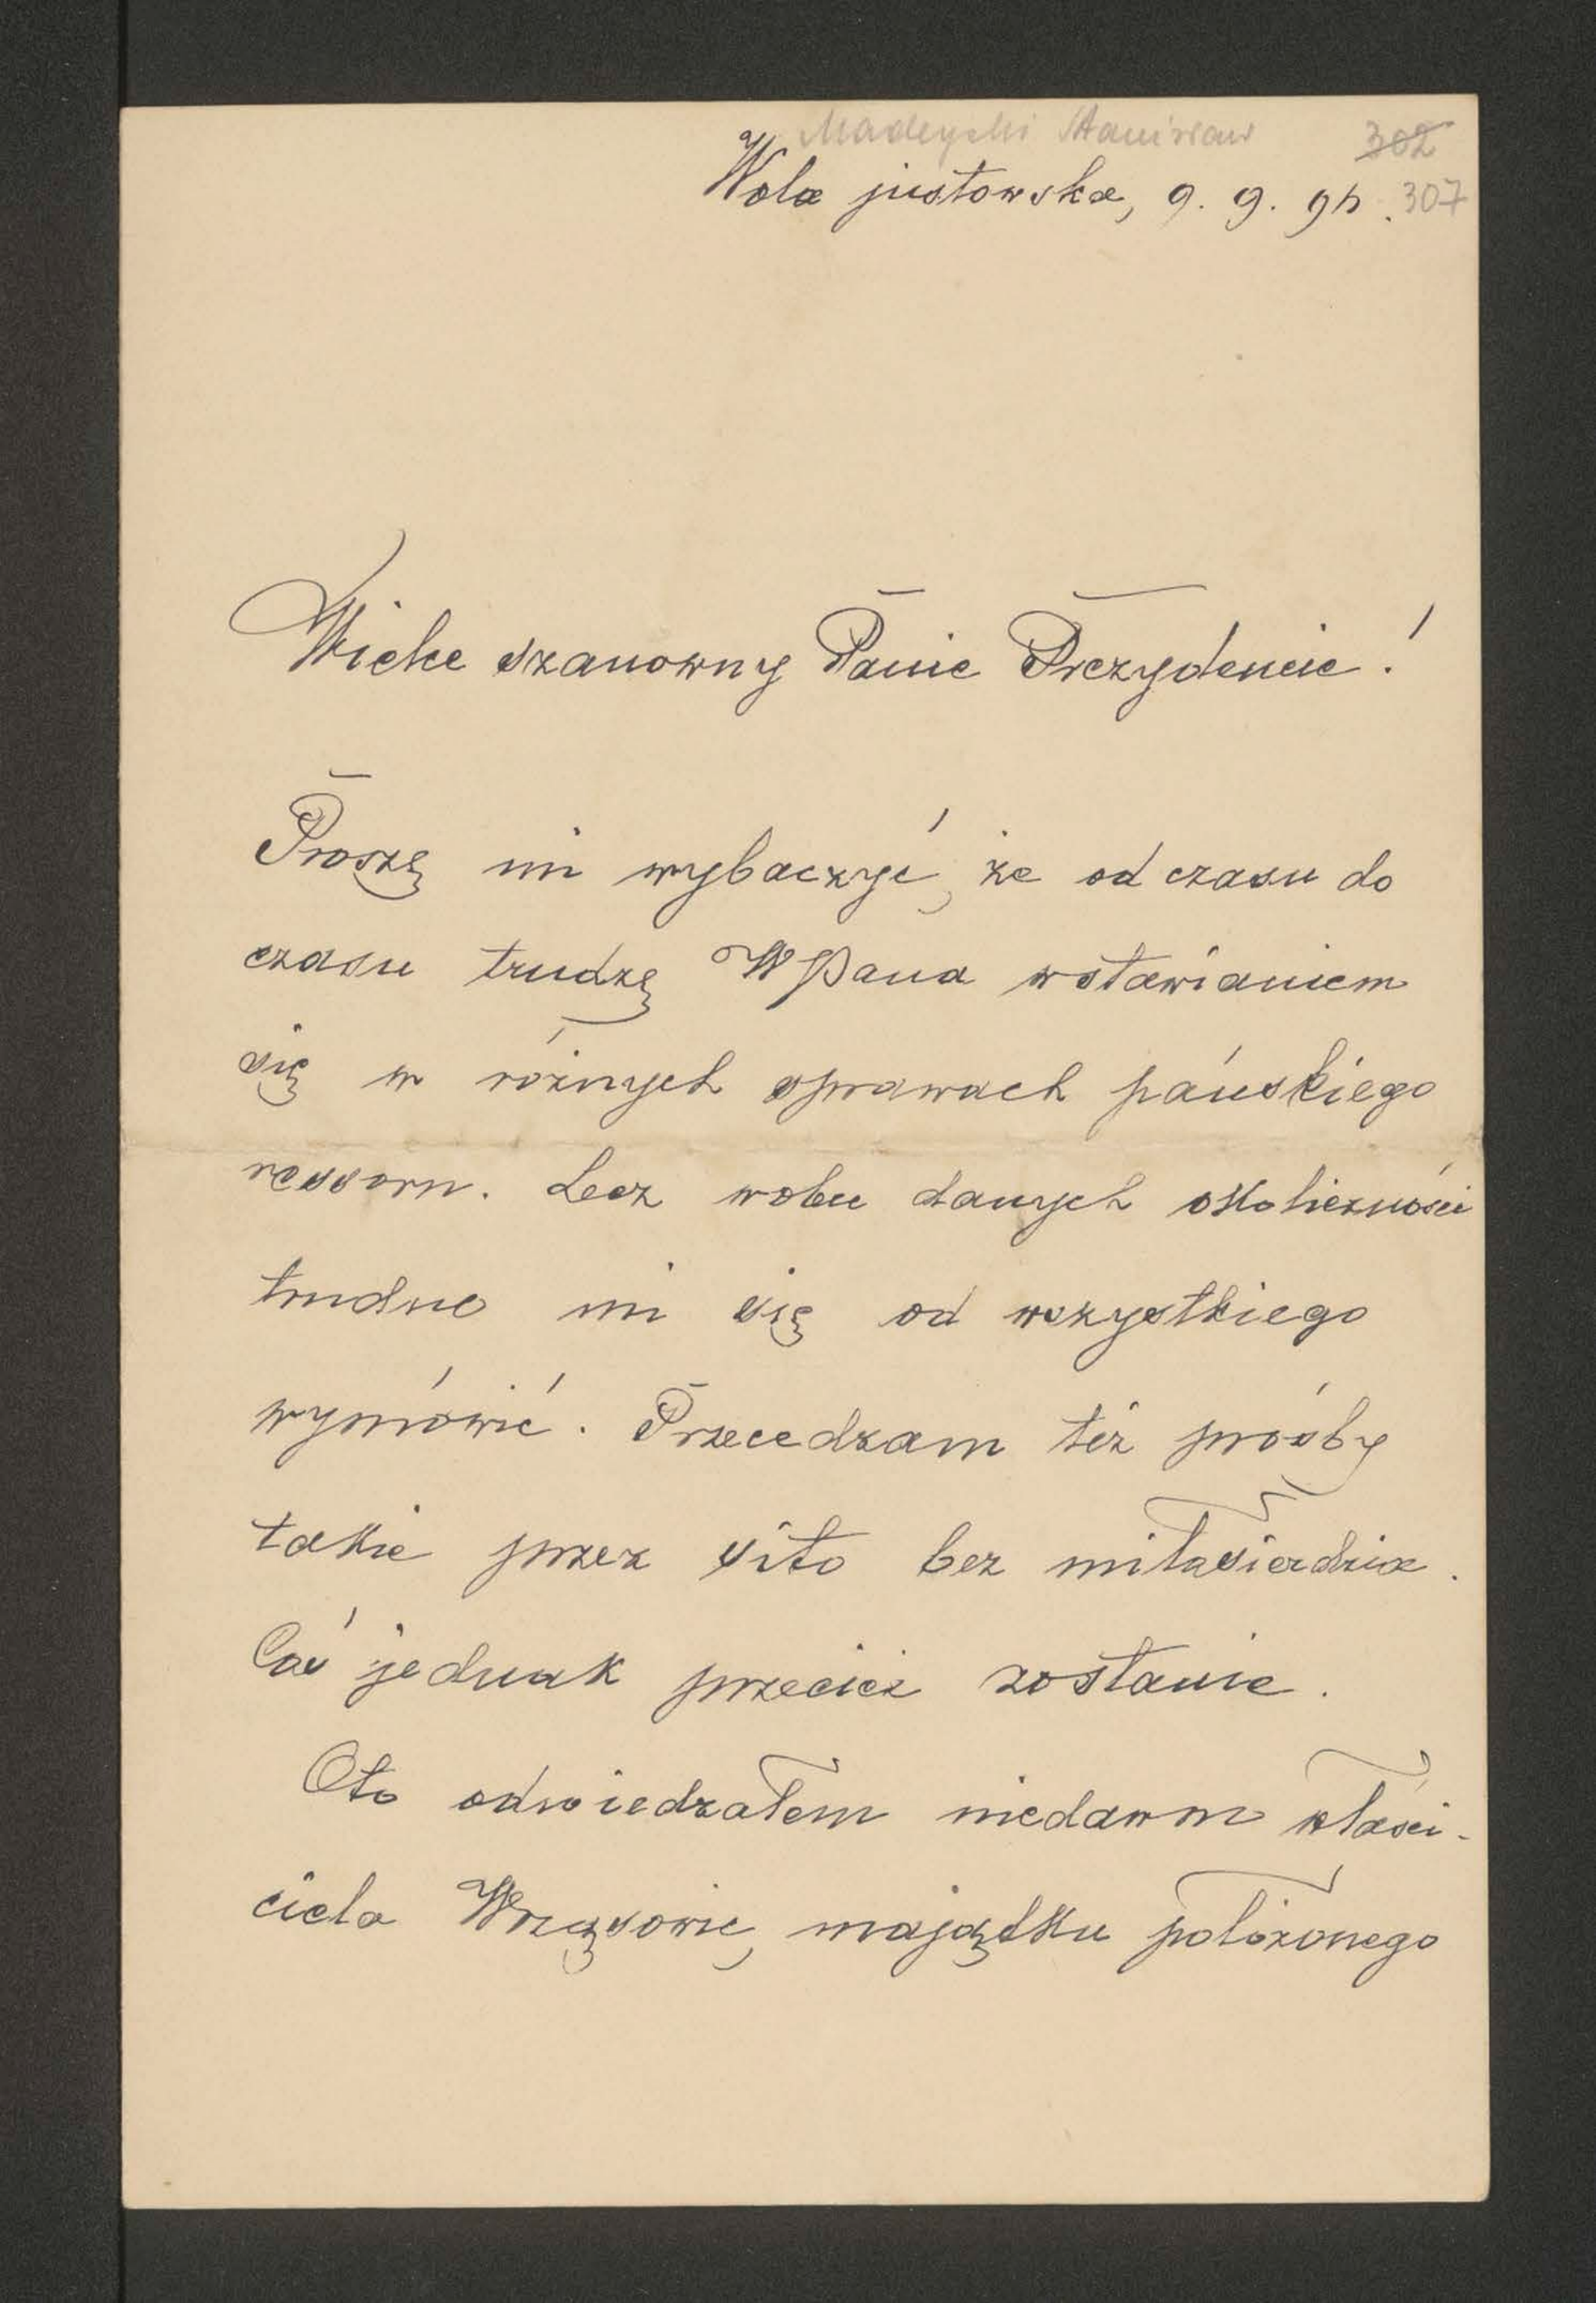 Madeyski Stanisław 302
Wola justowska, 9. 9. 95. 307
Wielce szanowny Panie Prezydencie!
Proszę mi wybaczyć, że od czasu do
czasu trudzę WPana wstawianiem
się w różnych sprawach pańskiego
ressoru. Lecz wobec danych okoliczności
trudno mi się od wszystkiego
wymówić. Przecedzam też prośby
takie przez sito bez miłosierdzia.
Coś jednak przecież zostanie.
Oto odwiedzałem niedawno właści-
ciela Wrząsowic, majątku położonego